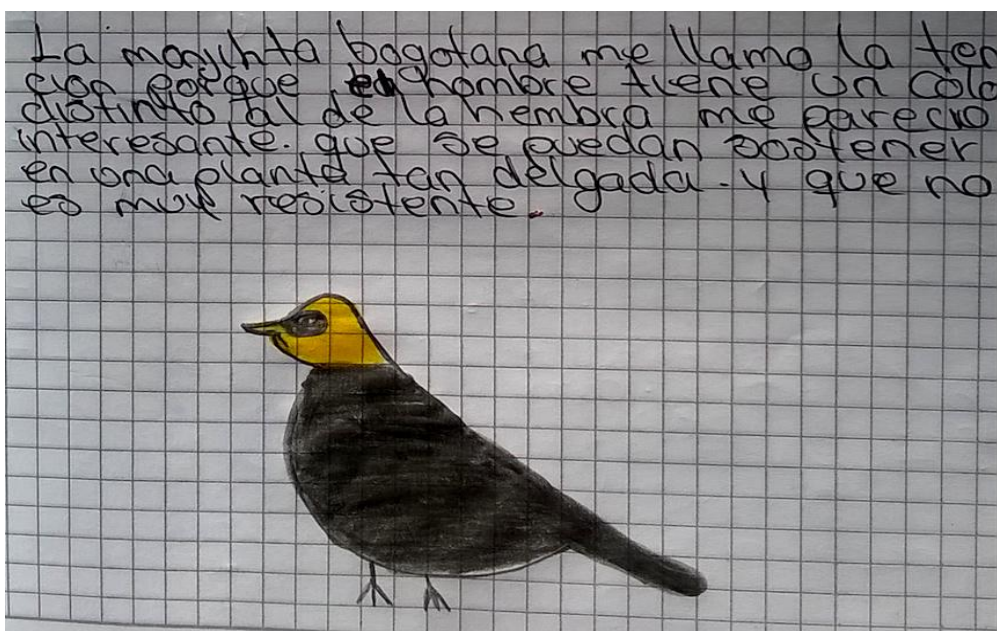 La monjhta bogotana me llamo la ten
cion porque el hombre tiene un colo
distinto al de la hembra me parecio
interesante. que se puedan sostener
en una planta tan delgada. y que no
es muy resistente.